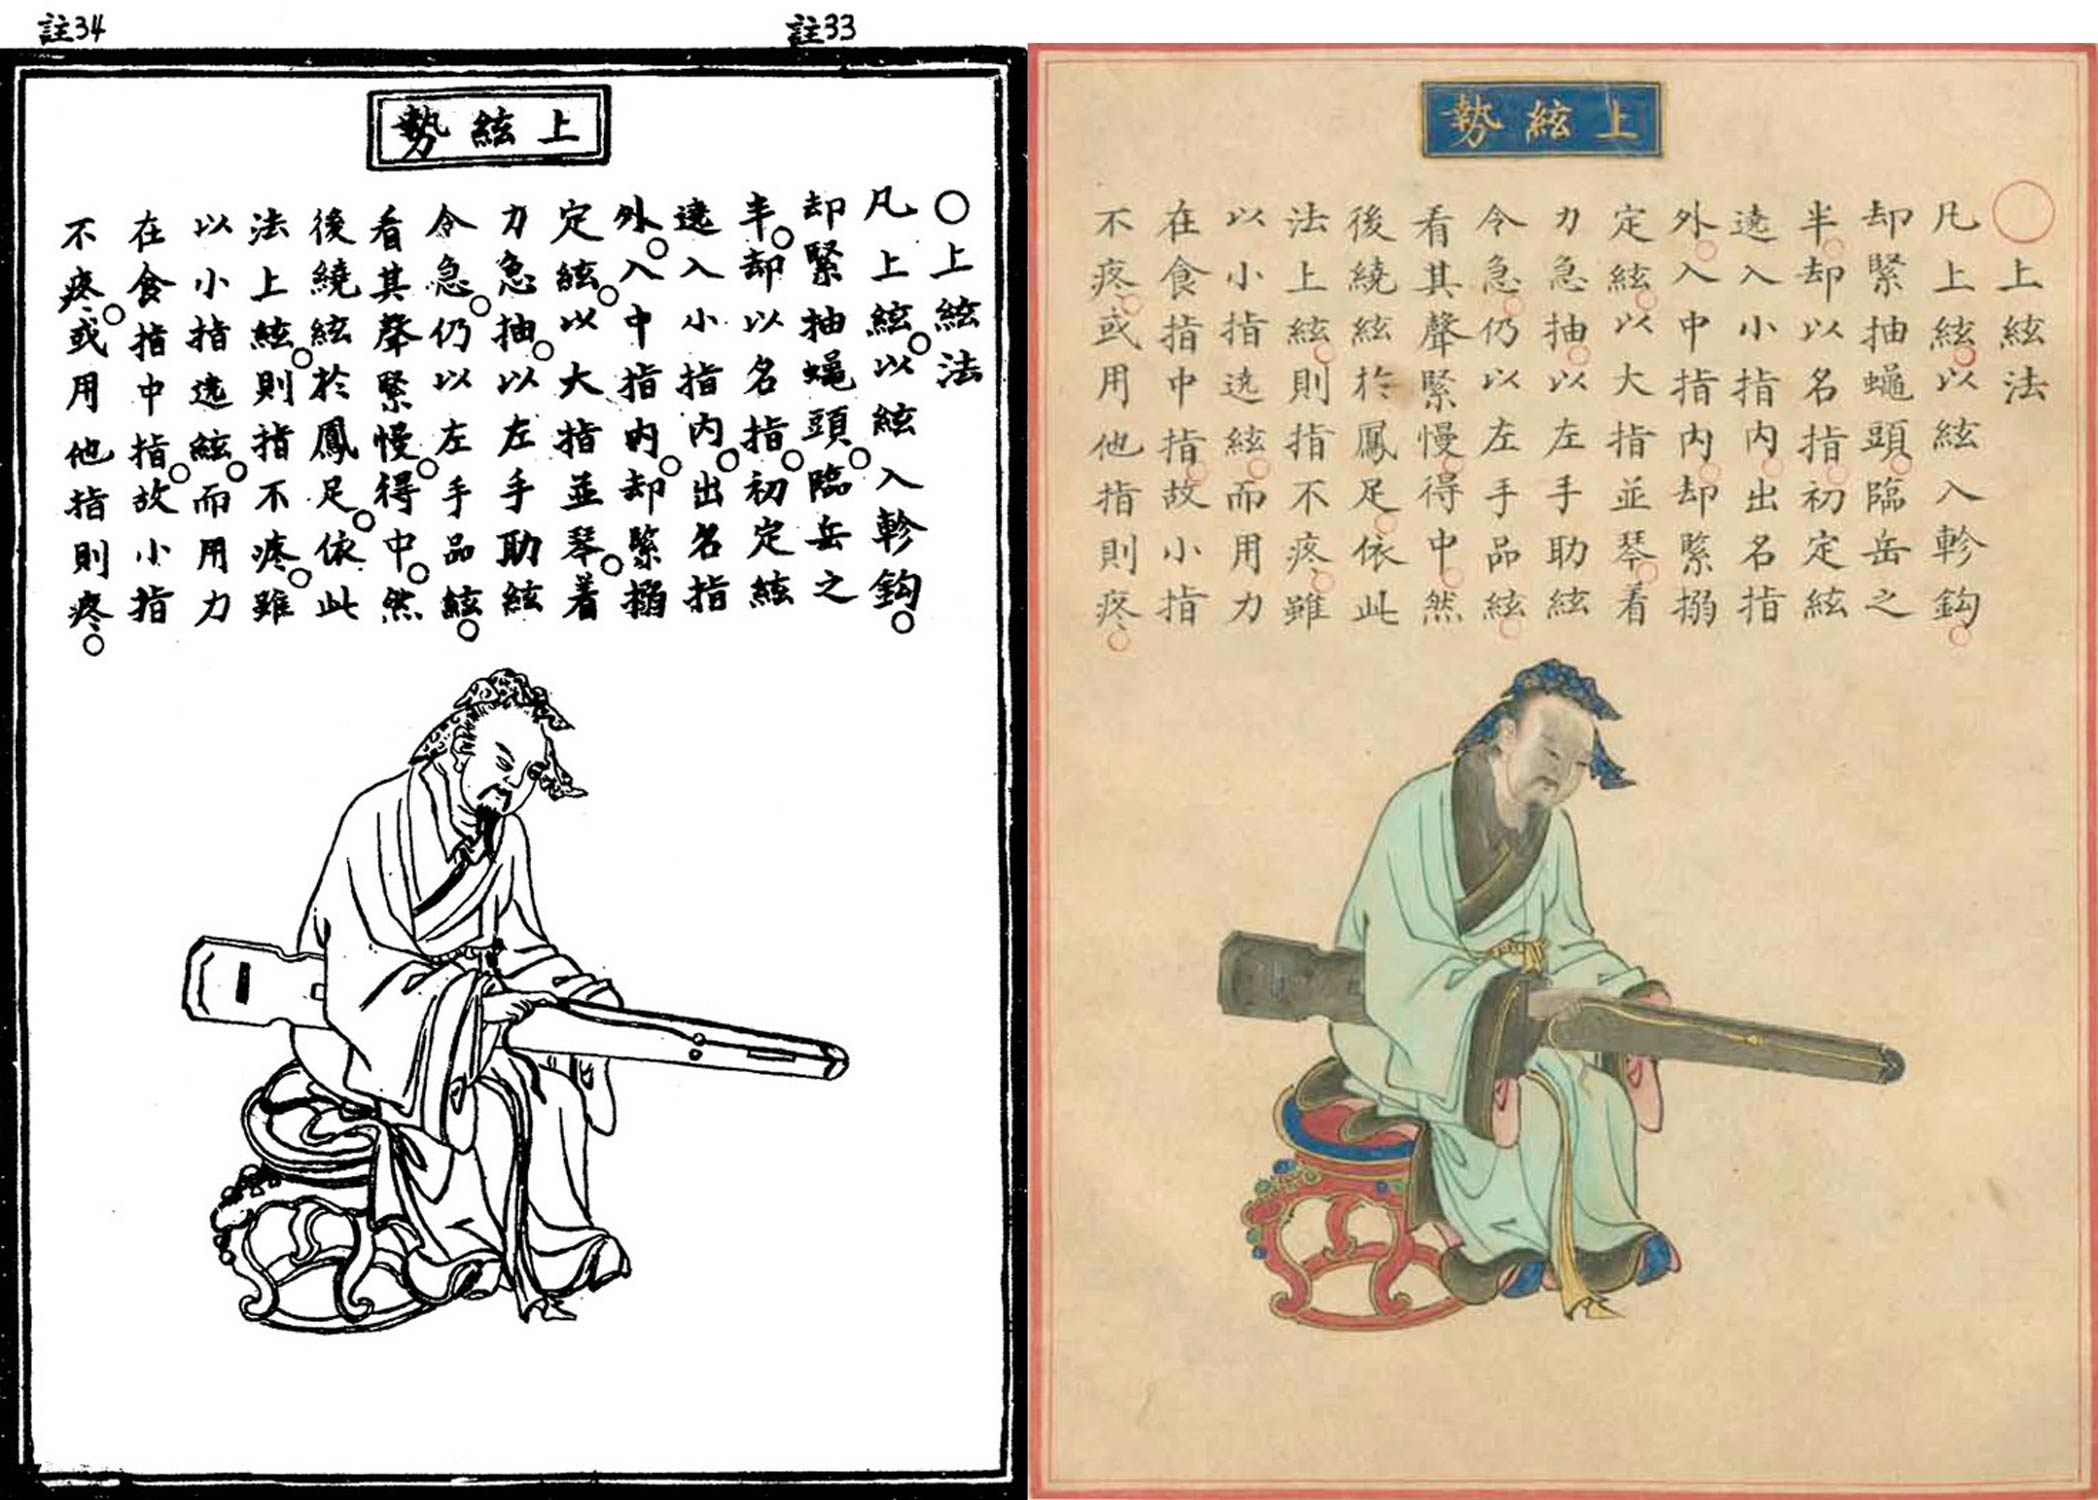 註33
註34
上絃勢
○上絃法
凡上絃。以絃入軫鈎。
却緊抽蠅頭。臨岳之
半。却以名指。初定絃
遶入小指內。出名指
外。入中指內。却緊搦
定絃。以大指並琴。着
力急抽。以左手助絃
令急。仍以左手品絃。
看其聲緊慢。得中。然
後繞絃於鳳足。依此
法上絃。則指不疼。雖
以小指遶絃。而用力
在食指中指。故小指
不疼。或用他指則疼。
上絃勢
○上絃法
凡上絃。以絃入軫鈎。
却緊抽蠅頭。臨岳之
半。却以名指。初定絃
遶入小指內。出名指
外。入中指內。却緊搦
定絃。以大指並琴。着
力急抽。以左手助絃
令急。仍以左手品絃。
看其聲緊慢。得中。然
後繞絃於鳳足。依此
法上絃。則指不疼。雖
以小指遶絃。而用力
在食指中指。故小指
不疼。或用他指則疼。